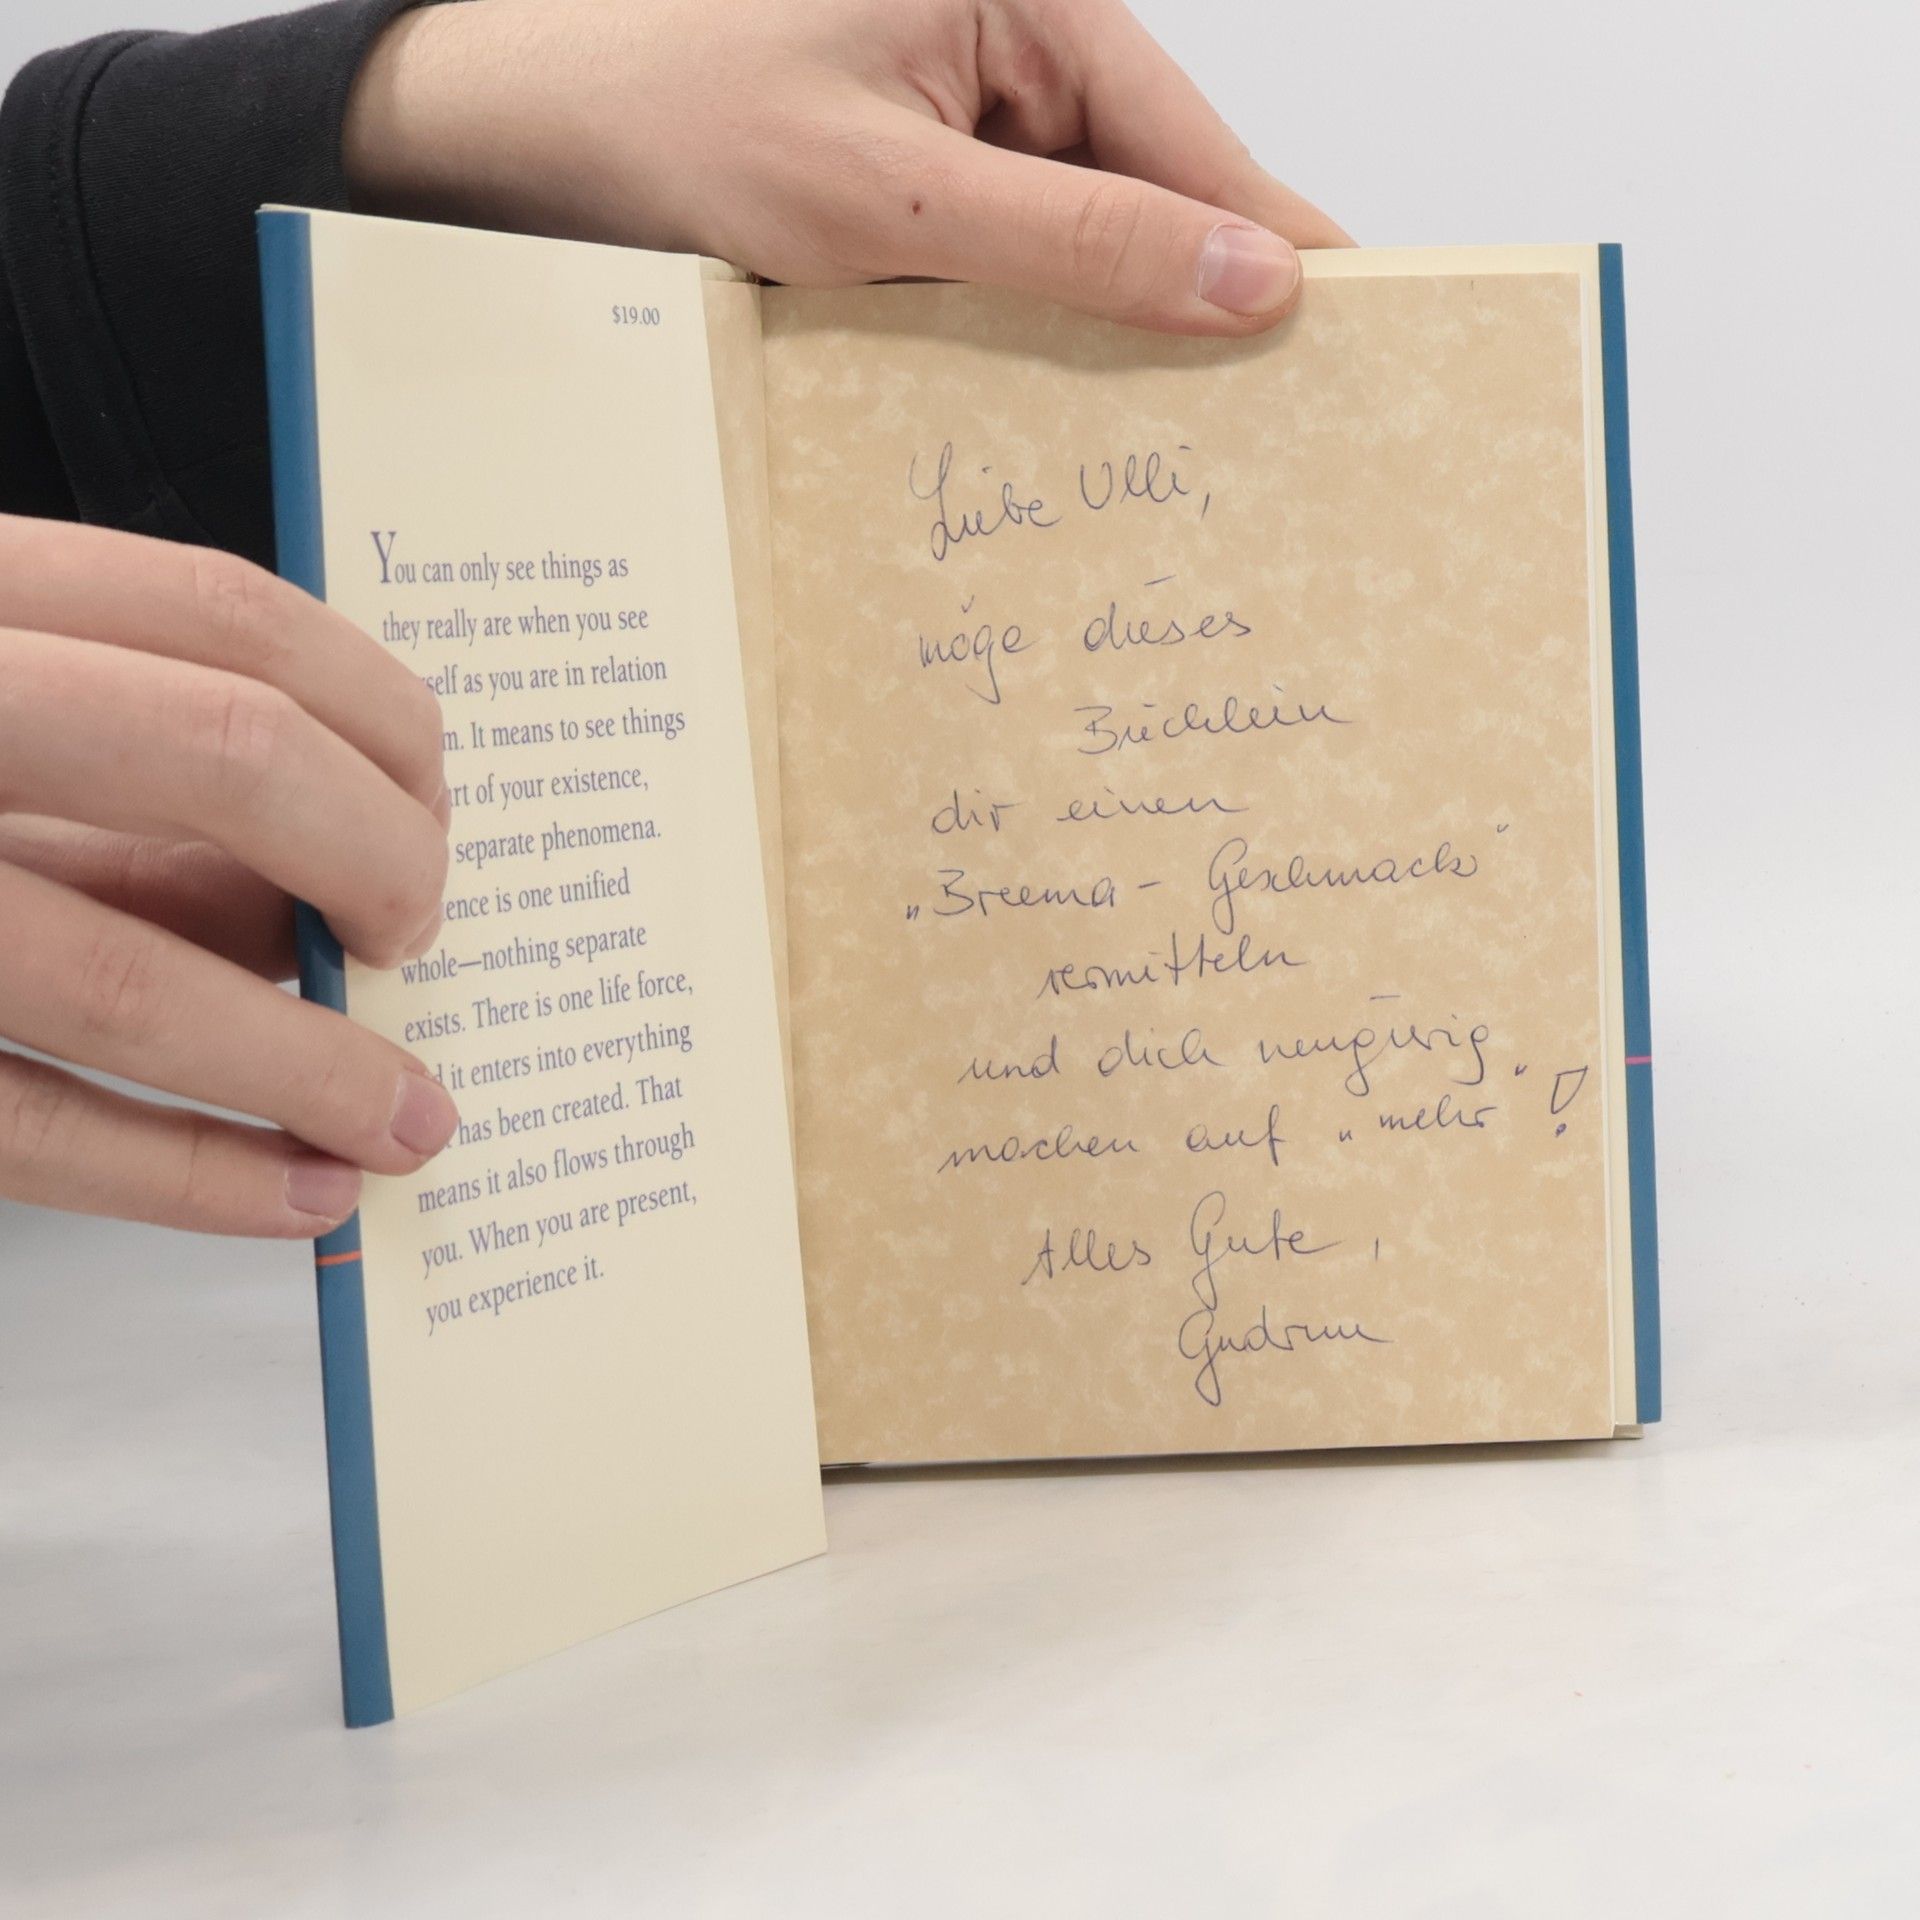 $19.00
You can only see things as
they really are when you see
self as you are in relation
m. It means to see things
art of your existence,
separate phenomena.
ence is one unified
whole—nothing separate
exists. There is one life force,
d it enters into everything
has been created. That
means it also flows through
you. When you are present,
you experience it.
Liebe Ulli,
möge dieses
Büchlein
dir einen
„Breema - Geschmack"
vermitteln
und dich neugierig
machen auf „mehr"!
Alles Gute,
Gudrun